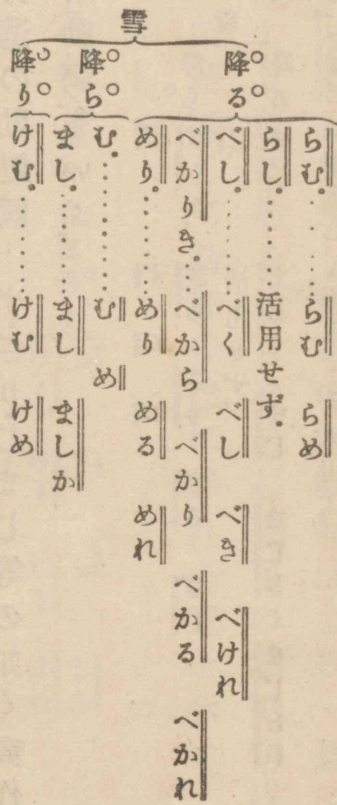 雪
降る
らむ。……らむ らめ
らし。……活用せず。
べし。……べく べし べき べけれ
べかりき。…べから べかり べかる べかれ
めり。……めり める めれ
降ら
む。……む め
まし。……まし ましか
降り
けむ。……けむ けめ